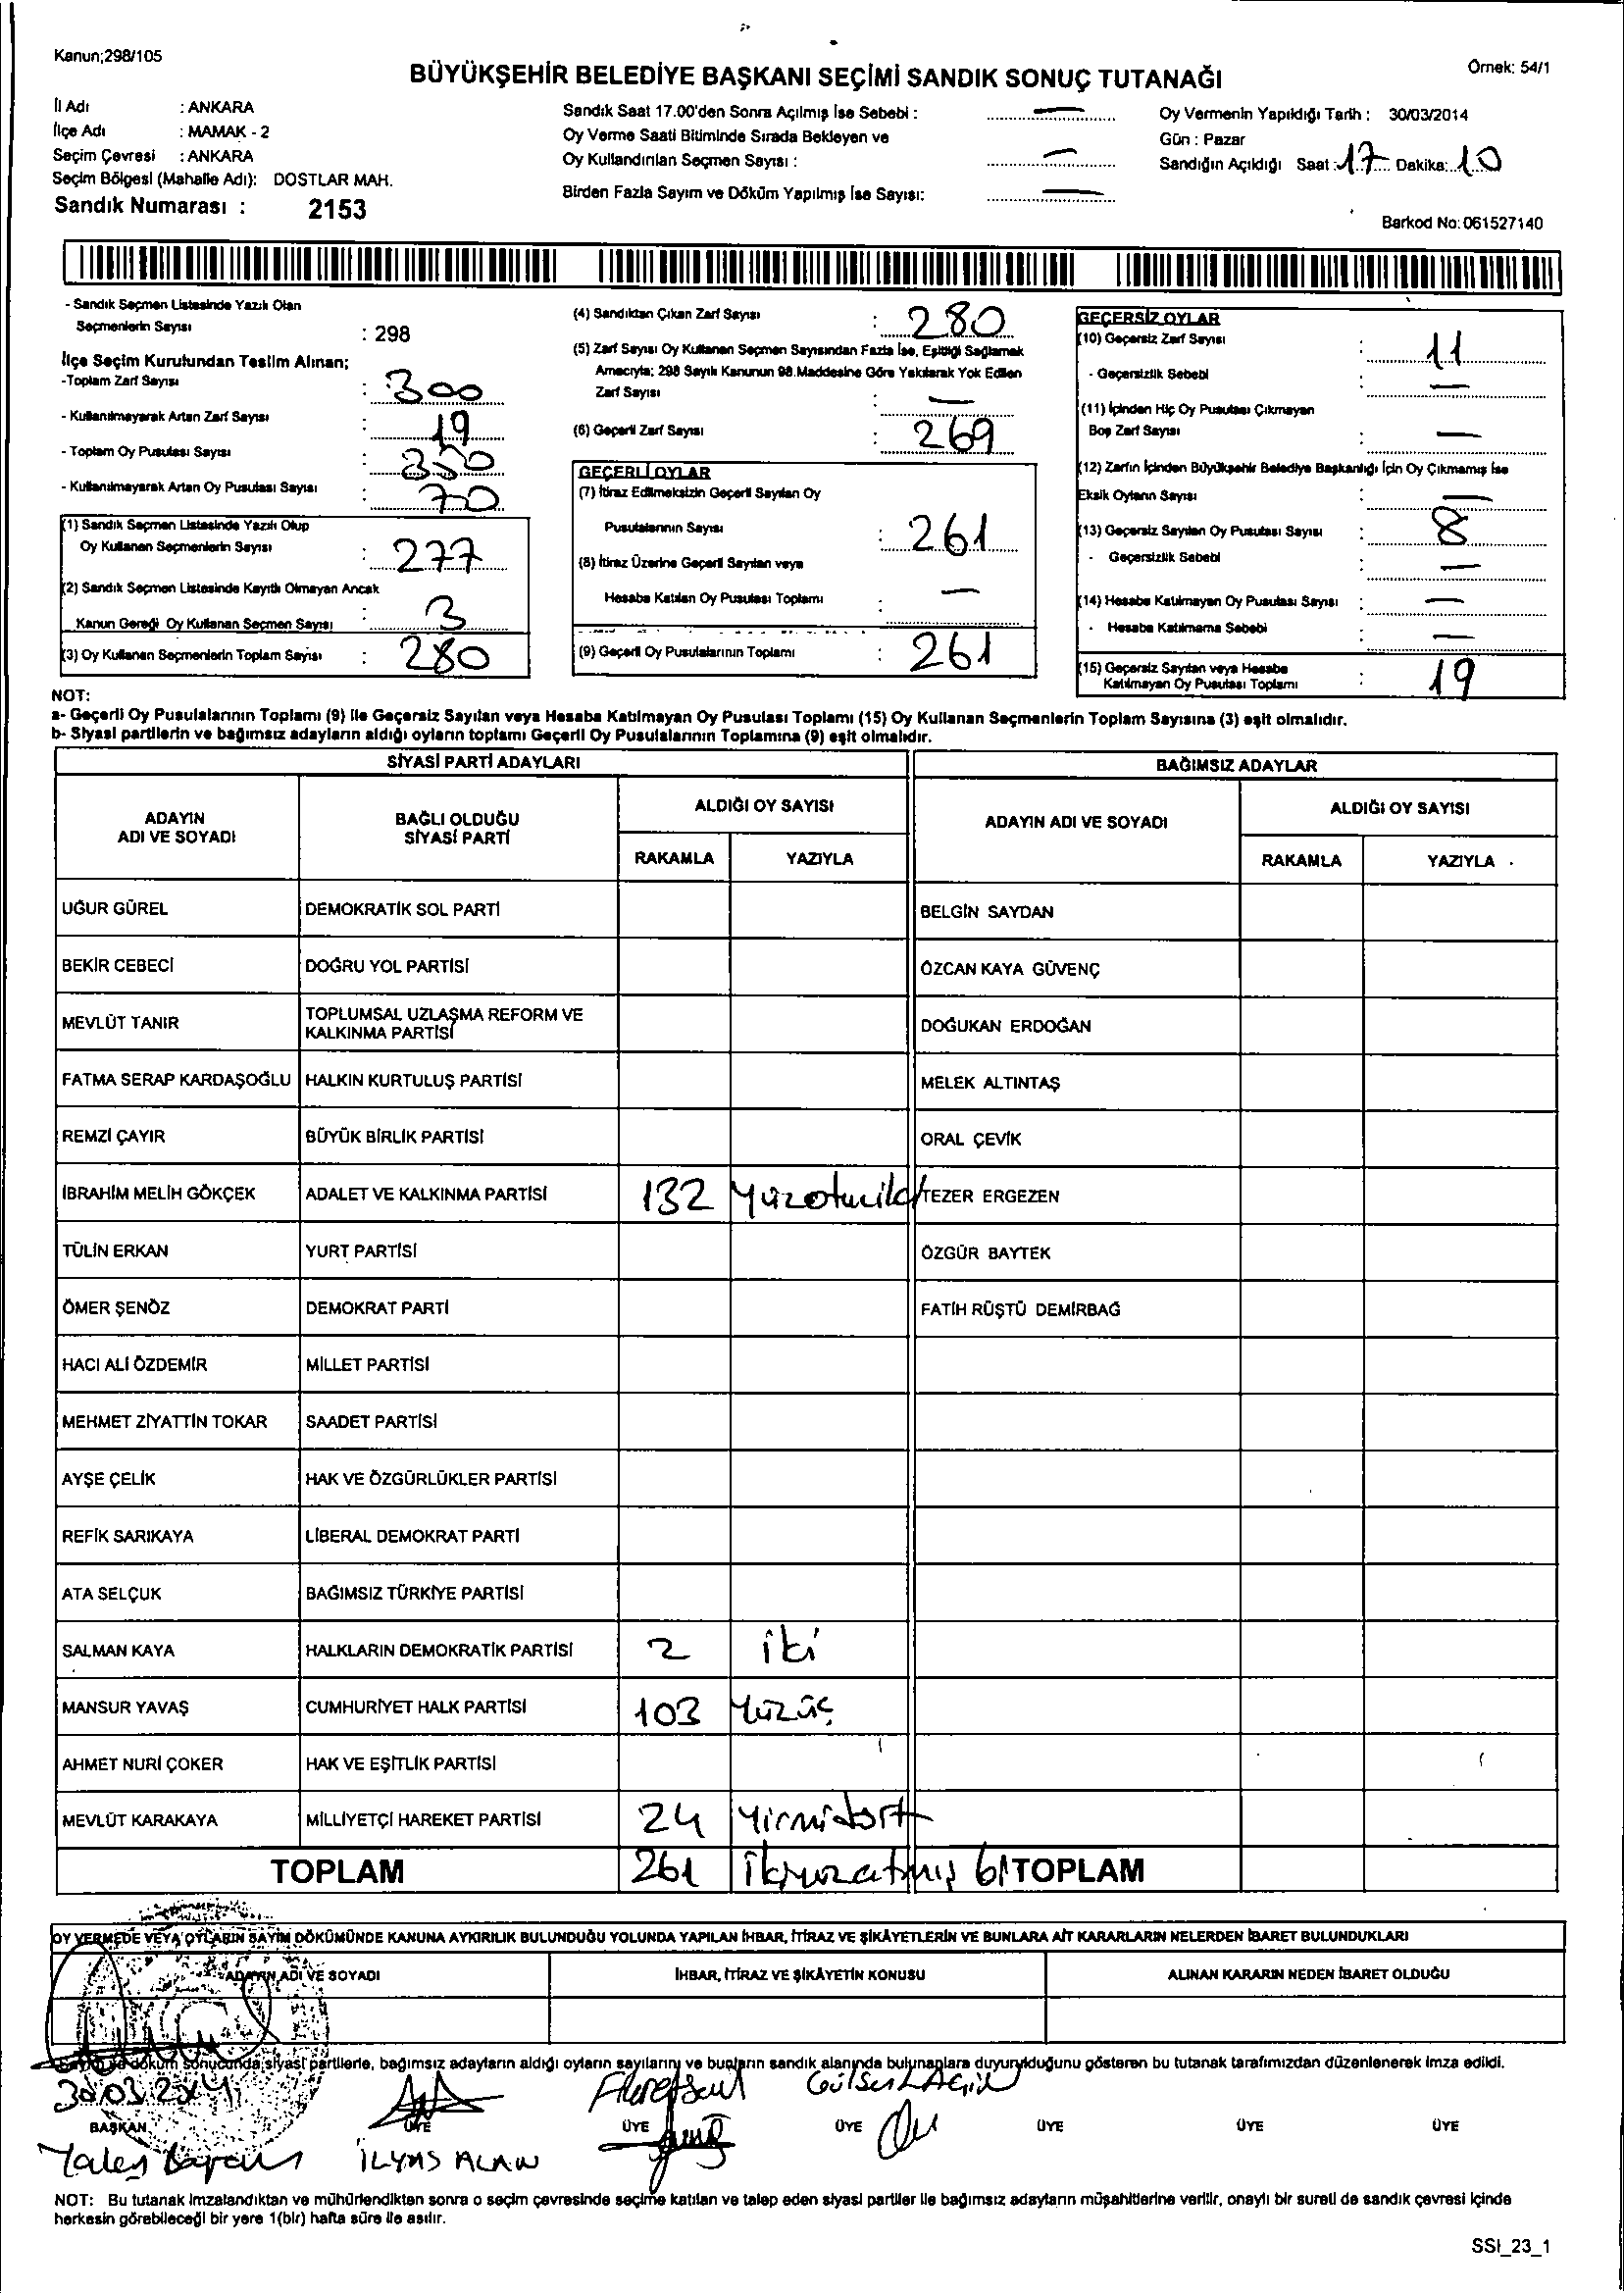 Kanun;298/105
Örnek: 54/1
BÜYÜKŞEHİR BELEDİYE BAŞKANI SEÇİMİ SANDIK SONUÇ TUTANAĞI
İl Adı : ANKARA
İlçe Adı : MAMAK - 2
Seçim Çevresi : ANKARA
Seçim Bölgesi (Mahalle Adı): DOSTLAR MAH.
Sandık Numarası : 2153
Sandık Saat 17.00'den Sonra Açılmış İse Sebebi : —
Oy Verme Saati Bitiminde Sırada Bekleyen ve
Oy Kullandırılan Seçmen Sayısı : —
Birden Fazla Sayım ve Döküm Yapılmış İse Sayısı: —
Oy Vermenin Yapıldığı Tarih : 30/03/2014
Gün : Pazar
Sandığın Açıldığı Saat: 17 Dakika: 10
Barkod No: 061527140
- Sandık Seçmen Listesinde Yazılı Olan
Seçmenlerin Sayısı : 298
İlçe Seçim Kurulundan Teslim Alınan;
-Toplam Zarf Sayısı : 300
- Kullanılmayarak Artan Zarf Sayısı : 19
- Toplam Oy Pusulası Sayısı : 350
- Kullanılmayarak Artan Oy Pusulası Sayısı : 70
(1) Sandık Seçmen Listesinde Yazılı Olup
Oy Kullanan Seçmenlerin Sayısı : 277
(2) Sandık Seçmen Listesinde Kayıtlı Olmayan Ancak
Kanun Gereği Oy Kullanan Seçmen Sayısı : 3
(3) Oy Kullanan Seçmenlerin Toplam Sayısı : 280
(4) Sandıktan Çıkan Zarf Sayısı : 280
(5) Zarf Sayısı Oy Kullanan Seçmen Sayısından Fazla İse, Eşitliği Sağlamak
Amacıyla; 298 Sayılı Kanunun 98.Maddesine Göre Yakılarak Yok Edilen
Zarf Sayısı : —
(6) Geçerli Zarf Sayısı : 269
GEÇERLİ OYLAR
(7) İtiraz Edilmeksizin Geçerli Sayılan Oy
Pusulalarının Sayısı : 261
(8) İtiraz Üzerine Geçerli Sayılan veya
Hesaba Katılan Oy Pusulası Toplamı : —
(9) Geçerli Oy Pusulalarının Toplamı : 261
GEÇERSİZ OYLAR
(10) Geçersiz Zarf Sayısı : 11
- Geçersizlik Sebebi : —
(11) İçinden Hiç Oy Pusulası Çıkmayan
Boş Zarf Sayısı : —
(12) Zarfın İçinden Büyükşehir Belediye Başkanlığı İçin Oy Çıkmamış İse
Eksik Oyların Sayısı : —
(13) Geçersiz Sayılan Oy Pusulası Sayısı : 8
- Geçersizlik Sebebi : —
(14) Hesaba Katılmayan Oy Pusulası Sayısı : —
- Hesaba Katılmama Sebebi : —
(15) Geçersiz Sayılan veya Hesaba
Katılmayan Oy Pusulası Toplamı : 19
NOT:
a- Geçerli Oy Pusulalarının Toplamı (9) ile Geçersiz Sayılan veya Hesaba Katılmayan Oy Pusulası Toplamı (15) Oy Kullanan Seçmenlerin Toplam Sayısına (3) eşit olmalıdır.
b- Siyasi partilerin ve bağımsız adayların aldığı oyların toplamı Geçerli Oy Pusulalarının Toplamına (9) eşit olmalıdır.
SİYASİ PARTİ ADAYLARI BAĞIMSIZ ADAYLAR
ADAYIN ADI VE SOYADI BAĞLI OLDUĞU SİYASİ PARTİ ALDIĞI OY SAYISI ADAYIN ADI VE SOYADI ALDIĞI OY SAYISI
RAKAMLA YAZIYLA RAKAMLA YAZIYLA
UĞUR GÜREL DEMOKRATİK SOL PARTİ BELGİN SAYDAN
BEKİR CEBECİ DOĞRU YOL PARTİSİ ÖZCAN KAYA GÜVENÇ
MEVLÜT TANIR TOPLUMSAL UZLAŞMA REFORM VE KALKINMA PARTİSİ DOĞUKAN ERDOĞAN
FATMA SERAP KARDAŞOĞLU HALKIN KURTULUŞ PARTİSİ MELEK ALTINTAŞ
REMZİ ÇAYIR BÜYÜK BİRLİK PARTİSİ ORAL ÇEVİK
İBRAHİM MELİH GÖKÇEK ADALET VE KALKINMA PARTİSİ 132 Yüzotuziki TEZER ERGEZEN
TÜLİN ERKAN YURT PARTİSİ ÖZGÜR BAYTEK
ÖMER ŞENÖZ DEMOKRAT PARTİ FATİH RÜŞTÜ DEMİRBAĞ
HACI ALİ ÖZDEMİR MİLLET PARTİSİ
MEHMET ZİYATTİN TOKAR SAADET PARTİSİ
AYŞE ÇELİK HAK VE ÖZGÜRLÜKLER PARTİSİ
REFİK SARIKAYA LİBERAL DEMOKRAT PARTİ
ATA SELÇUK BAĞIMSIZ TÜRKİYE PARTİSİ
SALMAN KAYA HALKLARIN DEMOKRATİK PARTİSİ 2 iki
MANSUR YAVAŞ CUMHURİYET HALK PARTİSİ 103 Yüzüç
AHMET NURİ ÇOKER HAK VE EŞİTLİK PARTİSİ
MEVLÜT KARAKAYA MİLLİYETÇİ HAREKET PARTİSİ 24 Yirmidört
TOPLAM 261 ikiyüzatmış bi TOPLAM
OY VERMEDE VEYA OYLARIN SAYIM DÖKÜMÜNDE KANUNA AYKIRILIK BULUNDUĞU YOLUNDA YAPILAN İHBAR, İTİRAZ VE ŞİKÂYETLERİN VE BUNLARA AİT KARARLARIN NELERDEN İBARET BULUNDUKLARI
ADAYIN ADI VE SOYADI İHBAR, İTİRAZ VE ŞİKÂYETİN KONUSU ALINAN KARARIN NEDEN İBARET OLDUĞU
Sayım ve döküm sonucunda siyasi partilerle, bağımsız adayların aldığı oyların sayılarını ve bunların sandık alanında bulunanlara duyurulduğunu gösteren bu tutanak tarafımızdan düzenlenerek imza edildi.
30.03.2014
BAŞKAN ÜYE ÜYE ÜYE ÜYE ÜYE ÜYE
İLYAS ALAN
NOT: Bu tutanak imzalandıktan ve mühürlendikten sonra o seçim çevresinde seçime katılan ve talep eden siyasi partiler ile bağımsız adayların müşahitlerine verilir, onaylı bir sureti de sandık çevresi içinde
herkesin görebileceği bir yere 1(bir) hafta süre ile asılır.
SSI_23_1